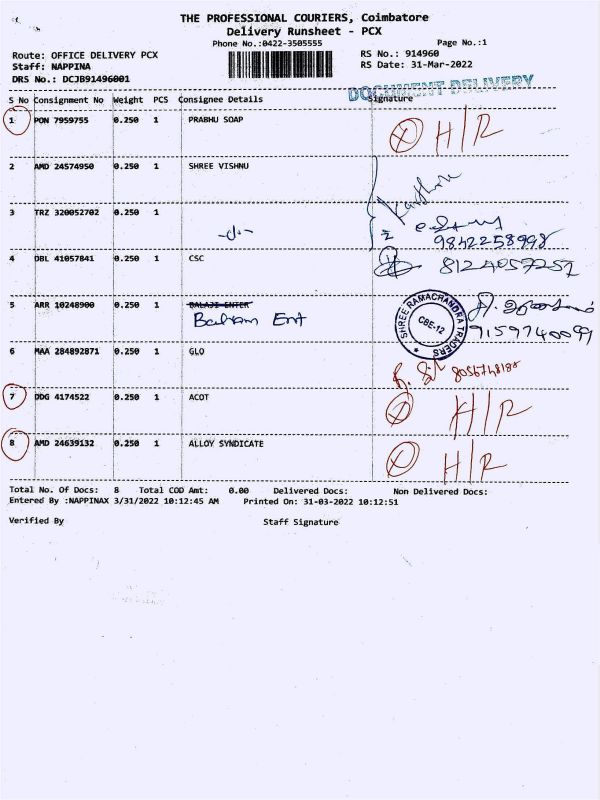 THE PROFESSIONAL COURIERS, Coimbatore
Delivery Runsheet - PCX
Phone No.:0422-3505555 Page No.:1
Route: OFFICE DELIVERY PCX RS No.: 914960
Staff: NAPPINA RS Date: 31-Mar-2022
DRS No.: DCJB91496001
DOCUMENT DELIVERY
S No Consignment No Weight PCS Consignee Details Signature
1 PON 7959755 0.250 1 PRABHU SOAP H/R
2 AMD 24574950 0.250 1 SHREE VISHNU
3 TRZ 320052702 0.250 1
9842258998
4 DBL 41057841 0.250 1 CSC 8124057257
5 ARR 10248900 0.250 1 BALAJI ENTER
Ent
SHREE RAMACHANDRA TRADERS
CBE-12
9159740099
6 MAA 284892871 0.250 1 GLO
7 DDG 4174522 0.250 1 ACOT H/R
8 AMD 24639132 0.250 1 ALLOY SYNDICATE H/R
Total No. Of Docs: 8 Total COD Amt: 0.00 Delivered Docs: Non Delivered Docs:
Entered By :NAPPINAX 3/31/2022 10:12:45 AM Printed On: 31-03-2022 10:12:51
Verified By Staff Signature